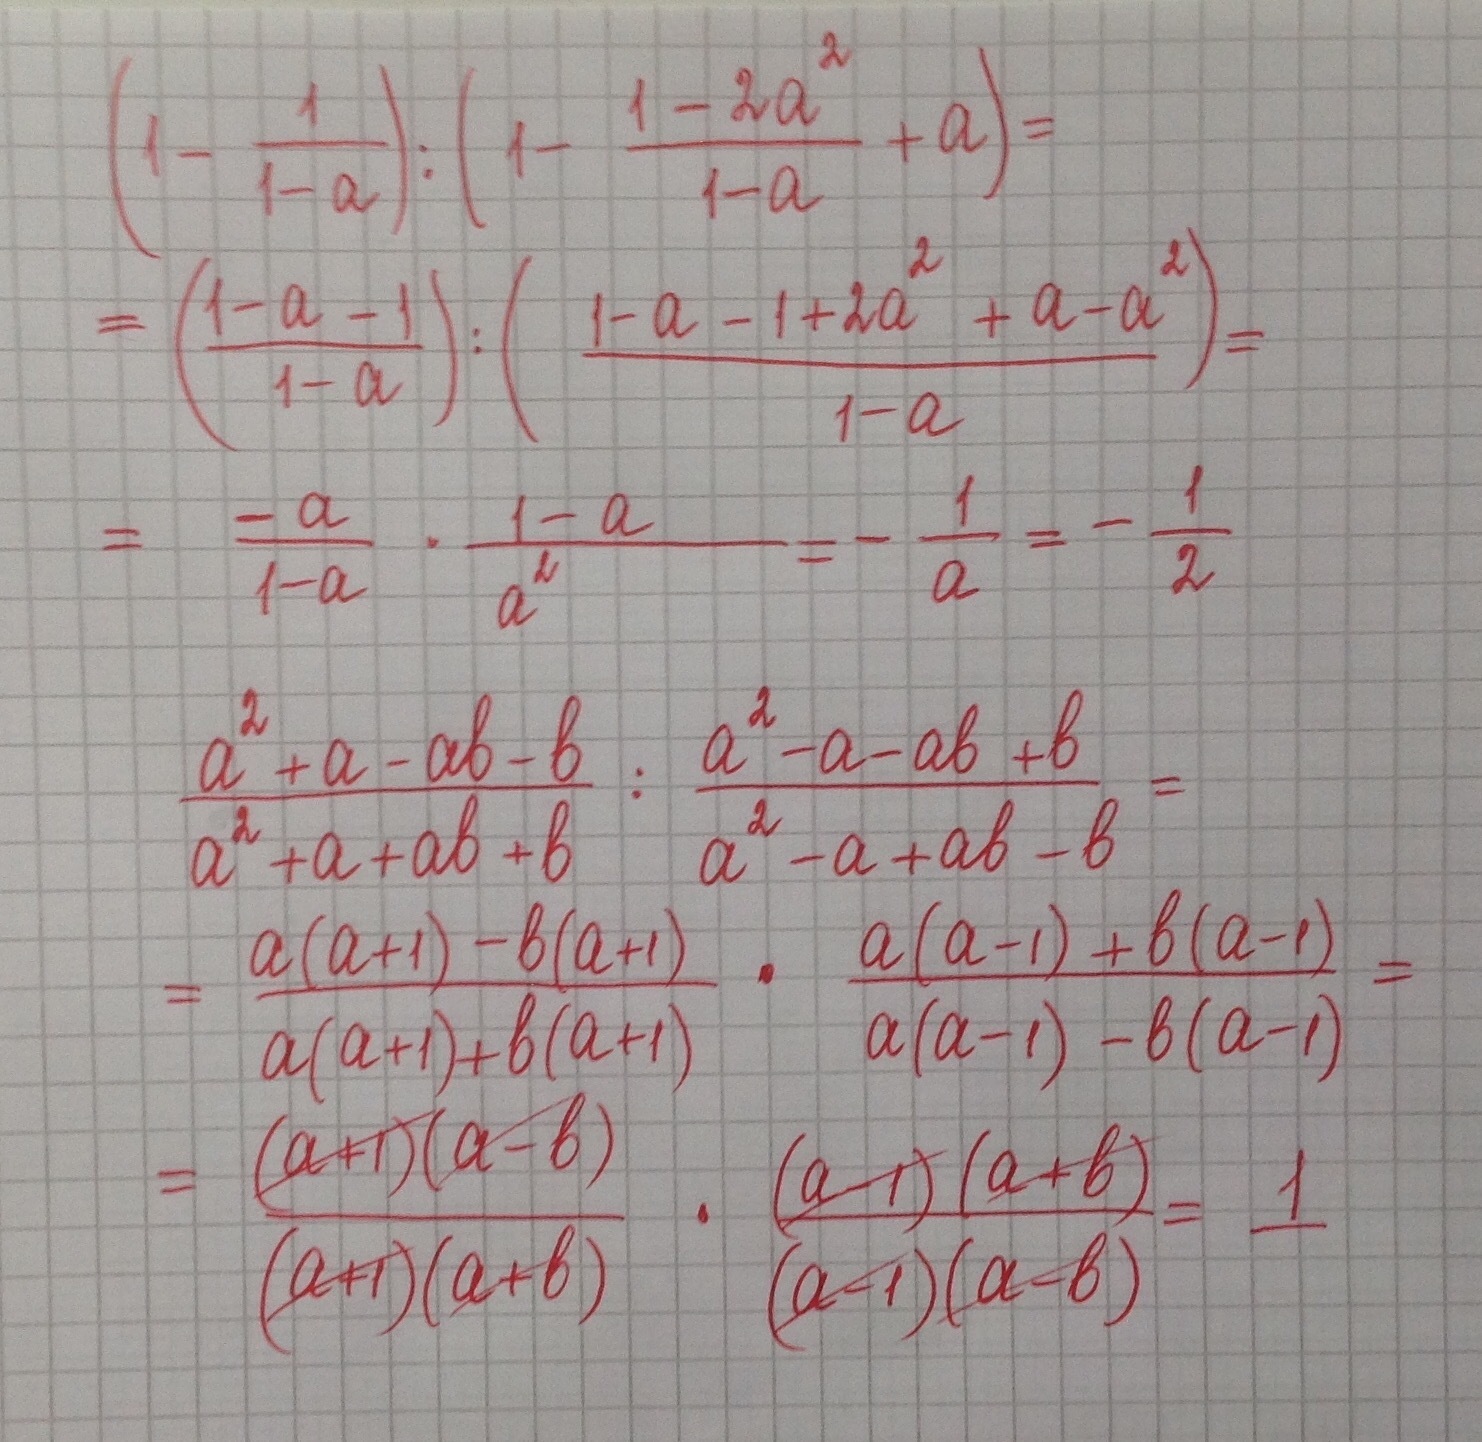 (1 - \frac{1}{1-a}) : (1 - \frac{1-2a^2}{1-a} + a) =
= (\frac{1-a-1}{1-a}) : (\frac{1-a-1+2a^2+a-a^2}{1-a}) =
= \frac{-a}{1-a} · \frac{1-a}{a^2} = -\frac{1}{a} = -\frac{1}{2}
\frac{a^2+a-ab-b}{a^2+a+ab+b} : \frac{a^2-a-ab+b}{a^2-a+ab-b} =
= \frac{a(a+1)-b(a+1)}{a(a+1)+b(a+1)} · \frac{a(a-1)+b(a-1)}{a(a-1)-b(a-1)} =
= \frac{(a+1)(a-b)}{(a+1)(a+b)} · \frac{(a-1)(a+b)}{(a-1)(a-b)} = 1